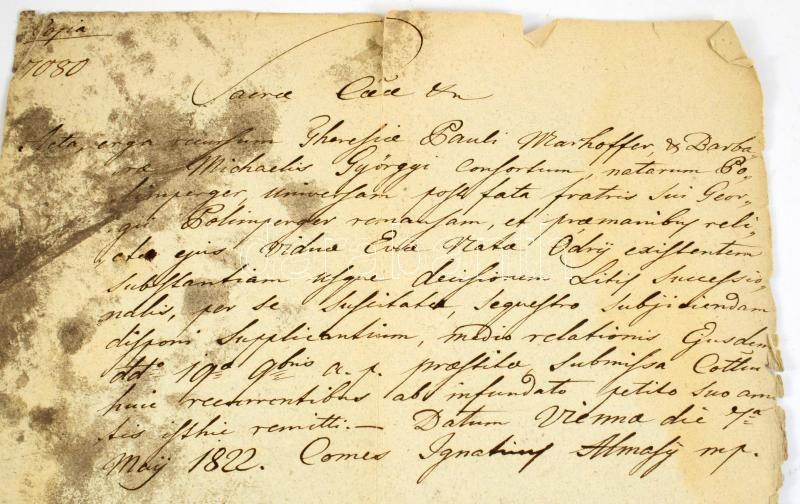 Copia
7080
Sacrae Caeae &a
Acta, erga recursum Theresiae Pauli Marhoffer, & Barba-
rae Michaelis Györgyi consortum, natarum Po-
limperger, universam post fata fratris sui Geor-
gii Polimperger remansam, et prae manibus reli-
ctae ejus Viduae Evae Natae Ödrÿ existentem
substantiam usque decisionem Litis successio-
nalis, per se suscitatae, sequestro subjiciendam
disponi supplicantium, medio relationis Ejusdem
ddto 19a 9bris a. p. praestitae submissa
huic recurrentibus ab infundato petito suo amo-
tis isthic remitti. — Datum Viennae die 7a
Maÿ 1822. Comes Ignatius Almasÿ mp.